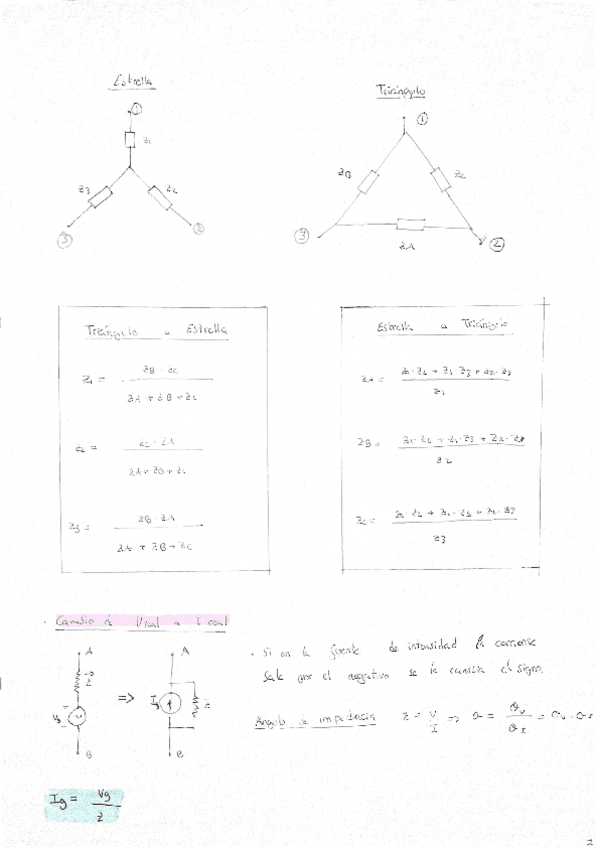 Estrella
Triángulo
1
Z1
Z3
Z2
3
2
1
ZB
ZC
3
ZA
2
Triángulo a Estrella
Z1 = ZB · ZC
ZA + ZB + ZC
Z2 = ZC · ZA
ZA + ZB + ZC
Z3 = ZB · ZA
ZA + ZB + ZC
Estrella a Triángulo
ZA = Z1·Z2 + Z1·Z3 + Z2·Z3
Z1
ZB = Z1·Z2 + Z1·Z3 + Z2·Z3
Z2
ZC = Z1·Z2 + Z1·Z3 + Z2·Z3
Z3
· Cambio Vreal a I real
A
Z
Vg
B
=>
A
Ig
Z
B
· Si en la fuente de intensidad la corriente
sale por el negativo se le cambia el signo.
Angulo de impedancia Z = V/I => θ = θV/θI = θV - θI
Ig = Vg
Z